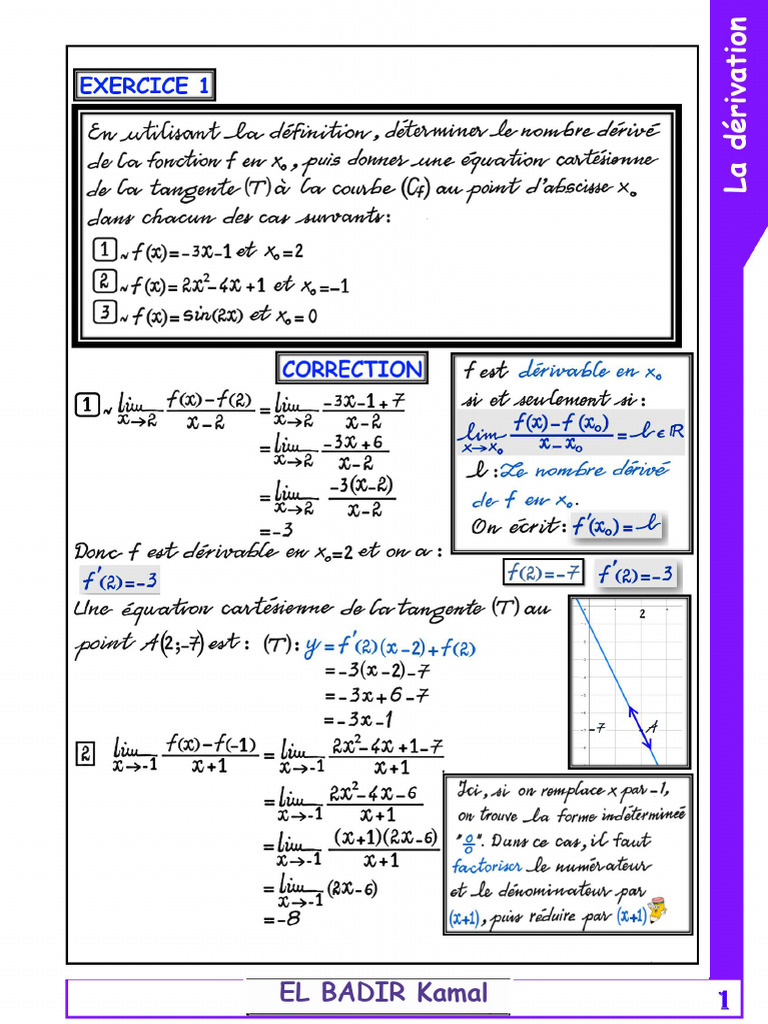 La dérivation
EXERCICE 1
En utilisant la définition, déterminer le nombre dérivé
de la fonction f en x₀, puis donner une équation cartésienne
de la tangente (T) à la courbe (Cf) au point d'abscisse x₀
dans chacun des cas suivants:
1 ~ f(x)=-3x-1 et x₀=2
2 ~ f(x)=2x²-4x+1 et x₀=-1
3 ~ f(x)=sin(2x) et x₀=0
CORRECTION
1 ~ lim x→2 (f(x)-f(2))/(x-2) = lim x→2 (-3x-1+7)/(x-2)
= lim x→2 (-3x+6)/(x-2)
= lim x→2 (-3(x-2))/(x-2)
=-3
f est dérivable en x₀
si et seulement si:
lim x→x₀ (f(x)-f(x₀))/(x-x₀) = l ∈ ℝ
l : Le nombre dérivé
de f en x₀.
On écrit: f'(x₀)=l
Donc f est dérivable en x₀=2 et on a:
f'(2)=-3
f(2)=-7
f'(2)=-3
Une équation cartésienne de la tangente (T) au
point A(2;-7) est: (T): y=f'(2)(x-2)+f(2)
=-3(x-2)-7
=-3x+6-7
=-3x-1
2
-7
A
2 lim x→-1 (f(x)-f(-1))/(x+1) = lim x→-1 (2x²-4x+1-7)/(x+1)
= lim x→-1 (2x²-4x-6)/(x+1)
= lim x→-1 ((x+1)(2x-6))/(x+1)
= lim x→-1 (2x-6)
=-8
Ici, si on remplace x par -1,
on trouve la forme indéterminée
"0/0". Dans ce cas, il faut
factoriser le numérateur
et le dénominateur par
(x+1), puis réduire par (x+1)
EL BADIR Kamal
1